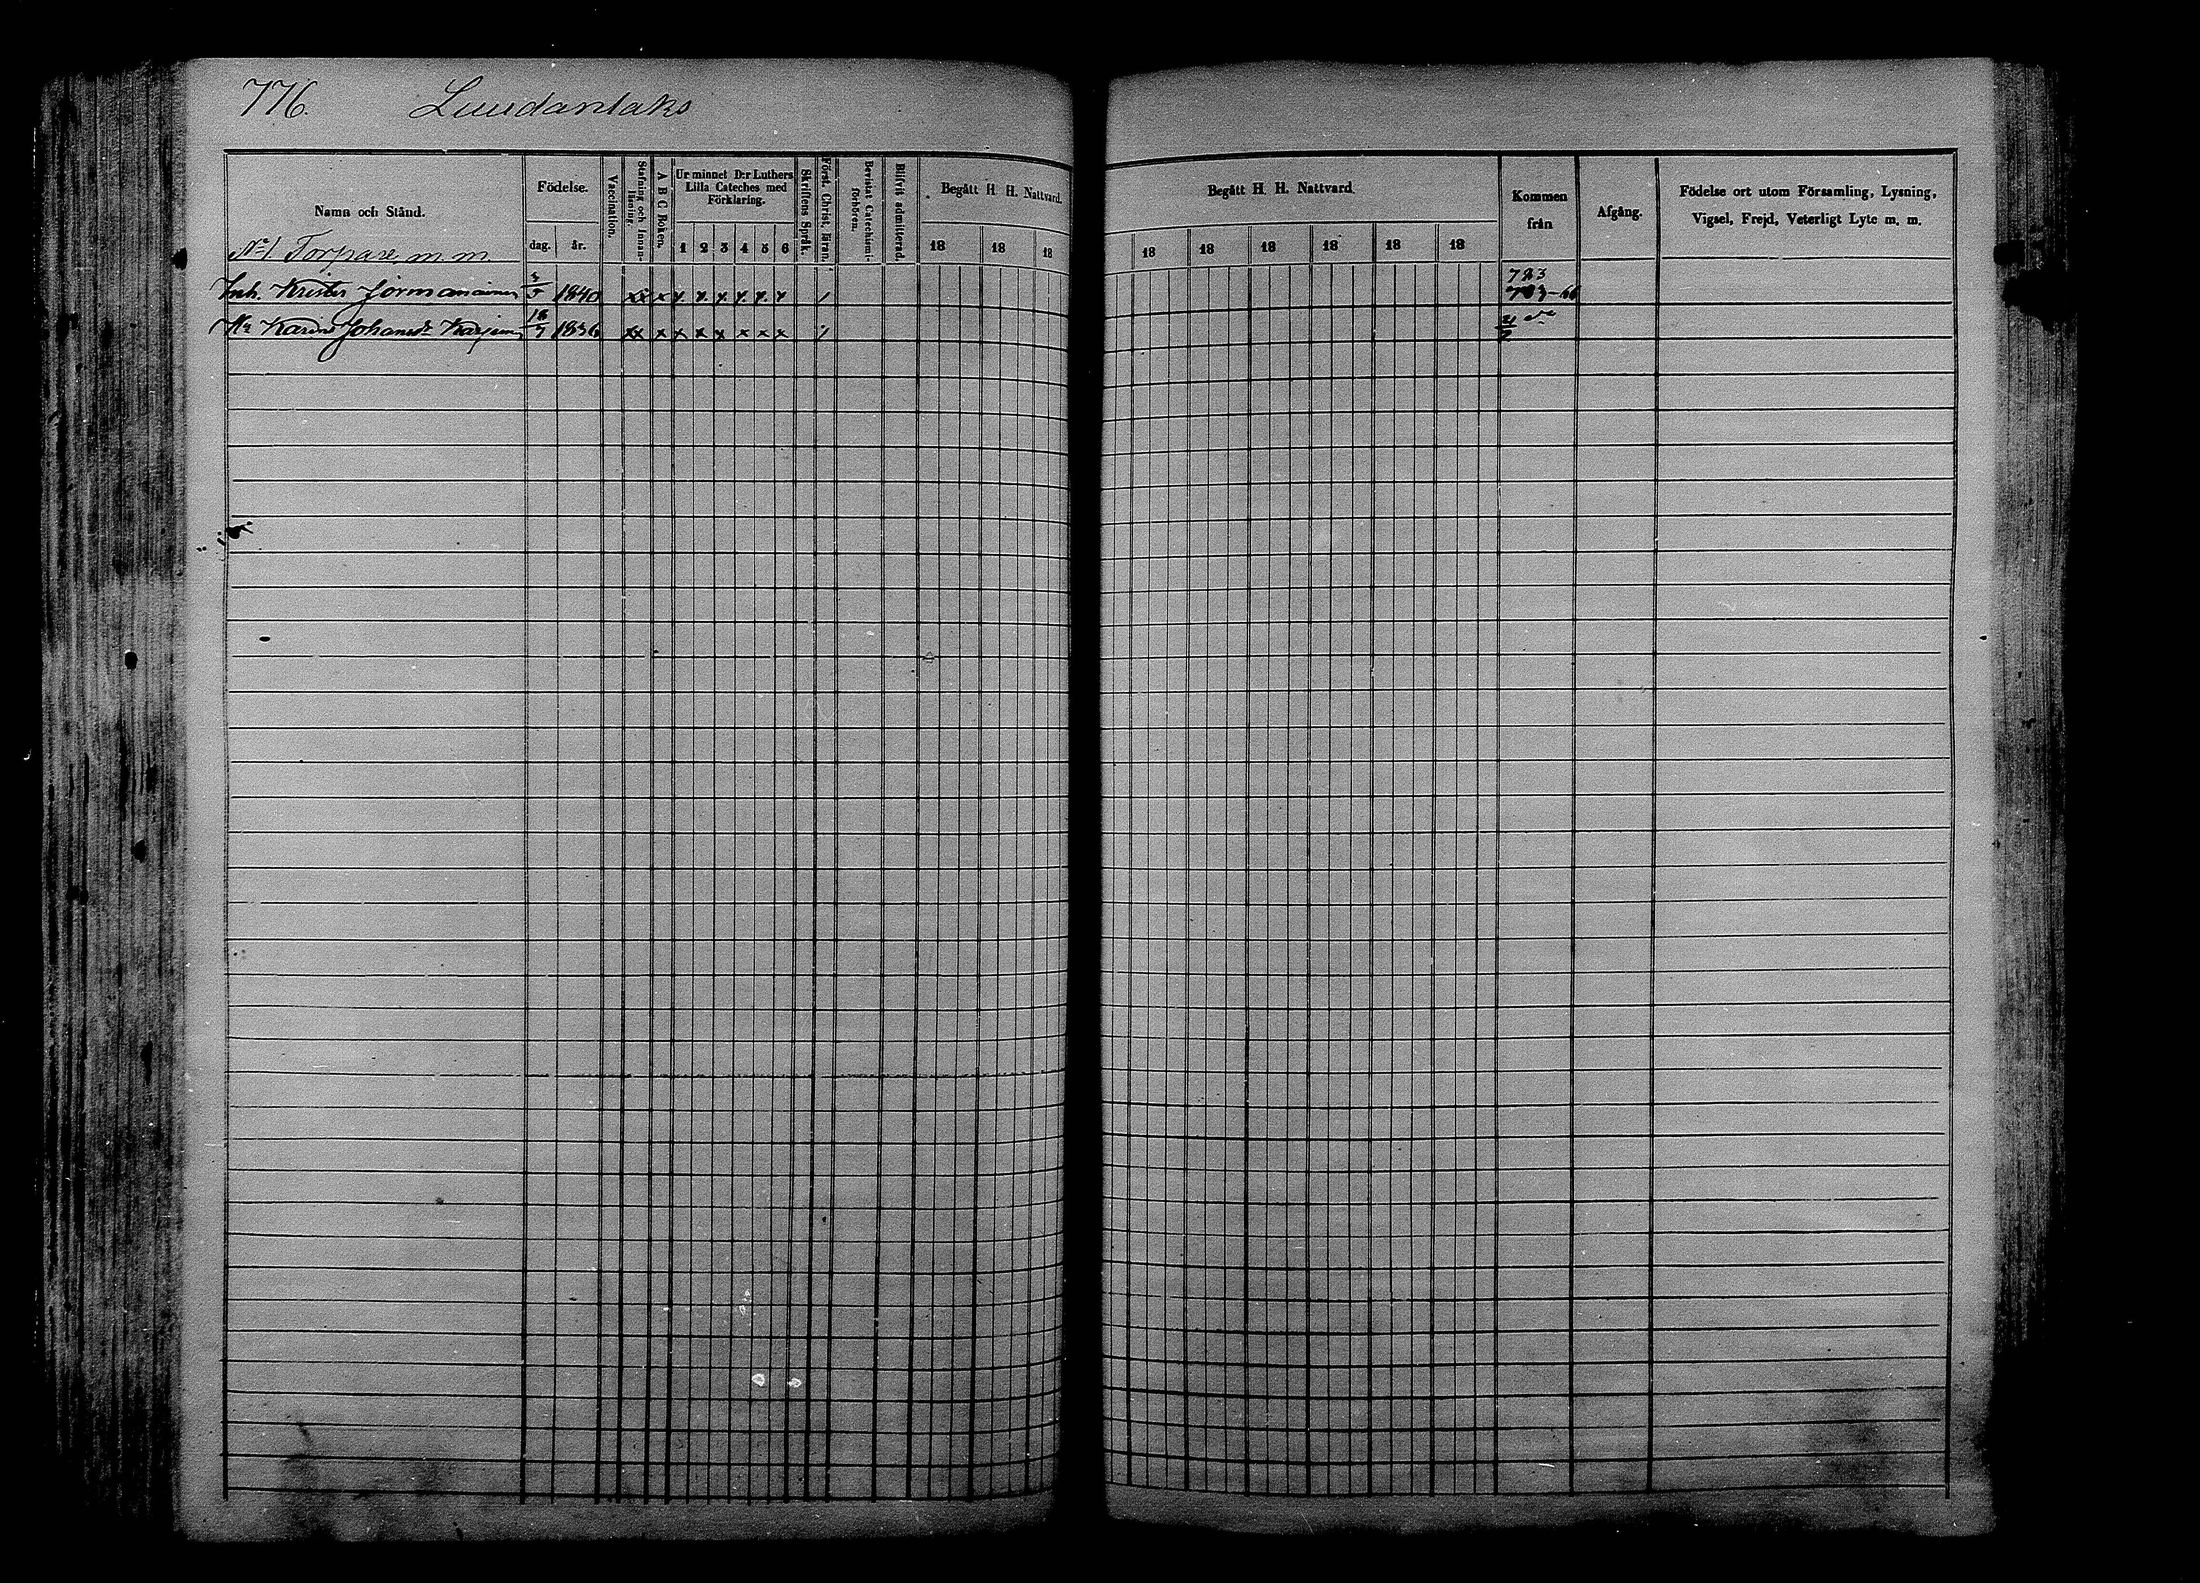 776. Luudanlaks
Namn och Stånd.
Födelse.
dag. år.
Vaccination.
Stafning och Innanläsning.
A B C Boken.
Ur minnet D:r Luthers
Lilla Cateches med
Förklaring.
1 2 3 4 5 6
Skriftens Språk.
Först. Christ. läran.
Bevistat Catechismi-
förhören.
Blifvit admitterad.
Begått H. H. Nattvard.
18 18 18
Begått H. H. Nattvard.
18 18 18 18 18 18
Kommen
från
Afgång.
Födelse ort utom Församling, Lysning,
Vigsel, Frejd, Veterligt Lyte m. m.
No 1. Torpare m. m.
Inh. Krister Jormanainen 3/5 1840 xx x x x x x x x / 723
703-66
Hu Karin Johansdr 18/7 1836 xx x x x x x x x /